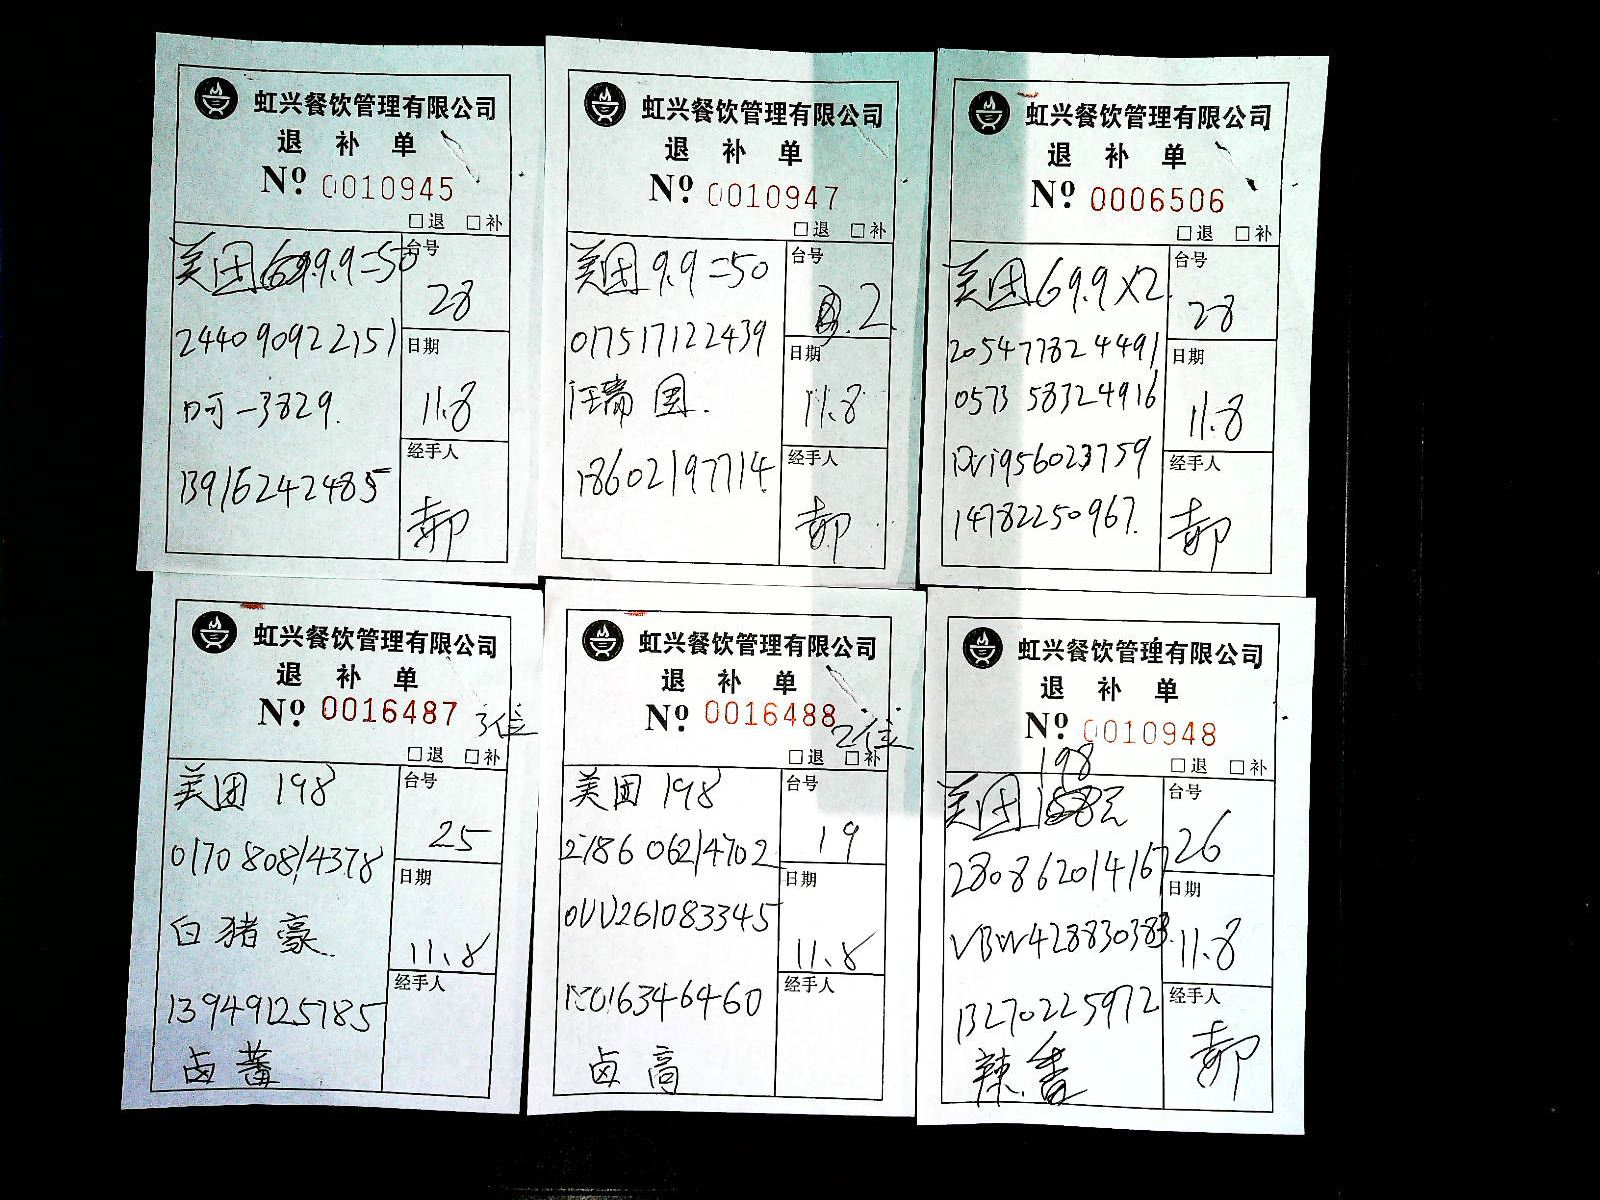 虹兴餐饮管理有限公司
退 补 单
Nº 0010945
□退 □补
美团 9.9=50
台号
28
244090922151
日期
阿一3829.
11.8
经手人
13916242485
郝
虹兴餐饮管理有限公司
退 补 单
Nº 0010947
□退 □补
美团 9.9=50
台号
2.
017517122439
日期
汪瑞国.
11.8
经手人
18602197714
郝
虹兴餐饮管理有限公司
退 补 单
Nº 0006506
□退 □补
美团 69.9X2
台号
28
205477824491
日期
0573 58324916
11.8
经手人
14782250967.
郝
虹兴餐饮管理有限公司
退 补 单
Nº 0016487 3位
□退 □补
美团 198
台号
25
0170 80814378
日期
白猪豪.
11.8
经手人
13949125785
卤
虹兴餐饮管理有限公司
退 补 单
Nº 0016488 2位
□退 □补
美团 198
台号
19
2786 06214702
日期
0UU261083345
11.8
经手人
卤 高
虹兴餐饮管理有限公司
退 补 单
Nº 0010948
□退 □补
198
美团
台号
26
280862014167
日期
11.8
经手人
13270225972
郝
辣 香